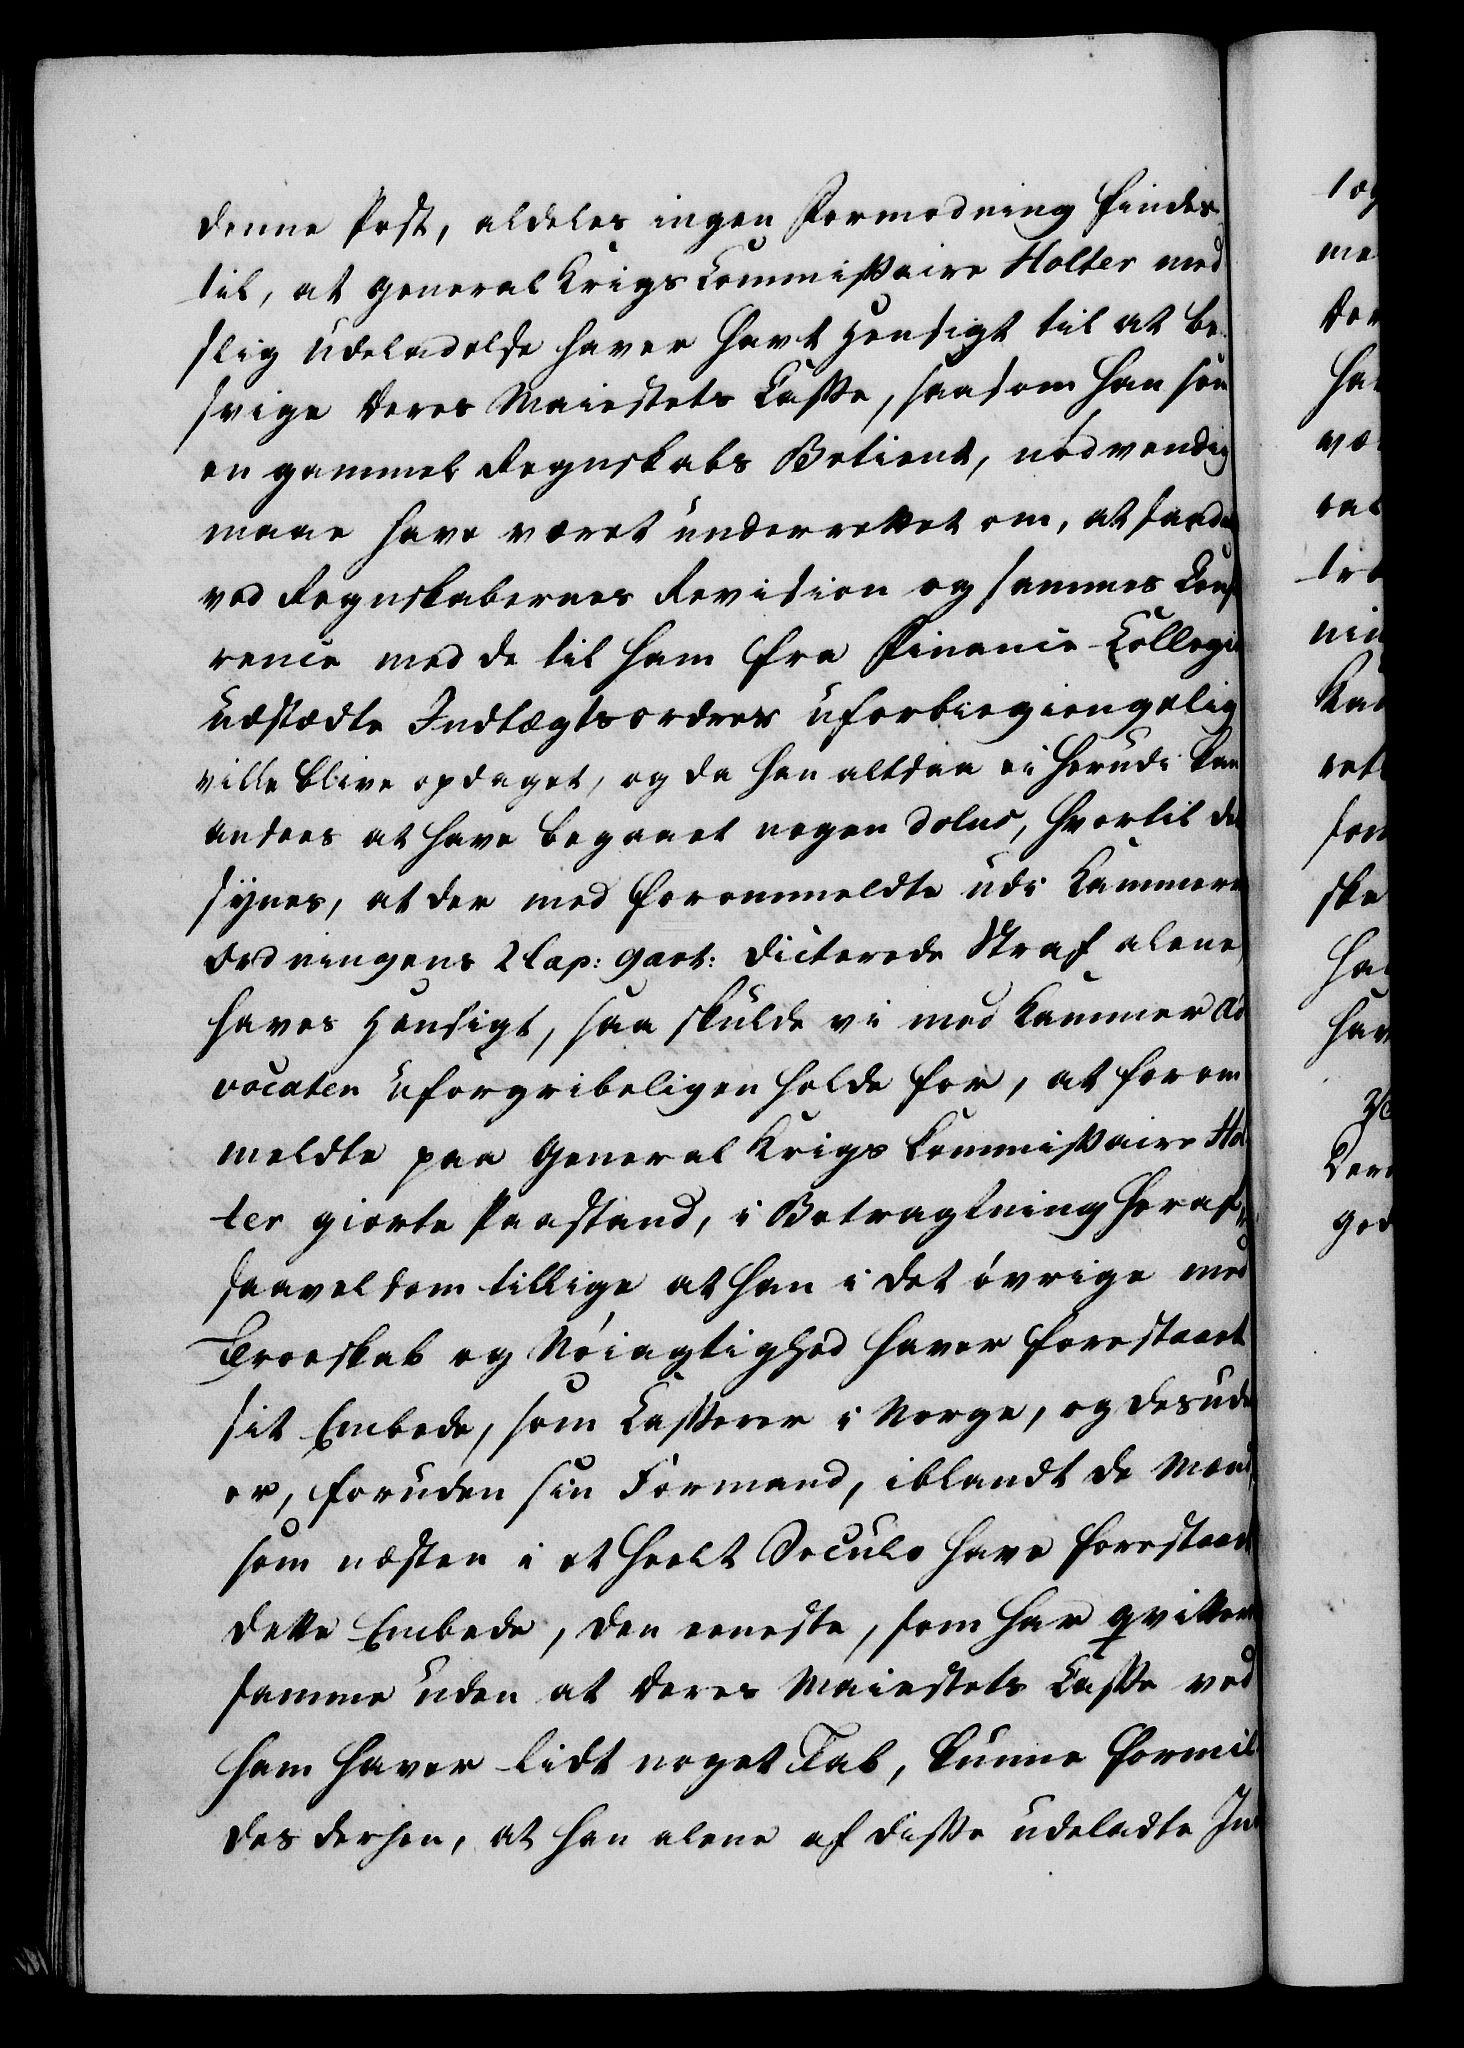 denne Post, aldeles ingen Formodning findes
til, at General Krigs Commissaire Holter med
slig Udeladelse haver havt Hensigt til at be-
svige Deres Maiestets Casse, saasom han som
en gammel Regnskabs Betient, nødvendig
maae have været underrettet om, at saadant
ved Regnskabernes Revision og sammes Confe
rence med de til ham fra Finance-Collegio
udstædte Indtægtsordres uforbiegiengelig
ville blive opdaget, og da han altsaa ei herudi kan
ansees at have begaaet nogen dolus, hvortil det
synes, at der med forommeldte udi Kammer
Ordningens 2 Cap: 9 art: dicterede Straf alene
haves Hensigt, saa skulde vi med Kammer Ad
vocaten uforgribeligen holde for, at forom
meldte paa General Krigs Commissaire Hol
ter giorte Paastand, i Betragtning heraf,
saavelsom tillige at han i det øvrige med
Troeskab og Nøiagtighed haver forestaaet
sit Embede, som Casserer i Norge, og desuden
er, foruden sin Formand, iblandt de Mænd,
som næsten i et heelt Seculo have forestaaet
dette Embede, den eeneste, som har qvitteret
samme uden at Deres Maiestets Casse ved
ham haver lidt noget Tab, kunne formil
des derhen, at han alene af disse udeladte Ind